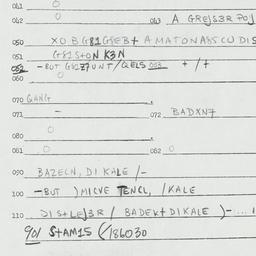 041 O
042 O 043 A GREJS3R POJ
050 XO BG81G8EB+ A MATONABSCUDIS
051 G81S+ON K3N
052 -BUT G81Z7UNT/QELS 053 +/+
060 O
070 GANG
071 - 072 BADXN7
080 O
081 O 082 O
090 BAZECN, DI KALE /-
100 -BUT )MICNE TENCL, /KALE
110 JIS+LEJ3R / BADEK+DIKALE )-....1
901 S+AM15 (/186030